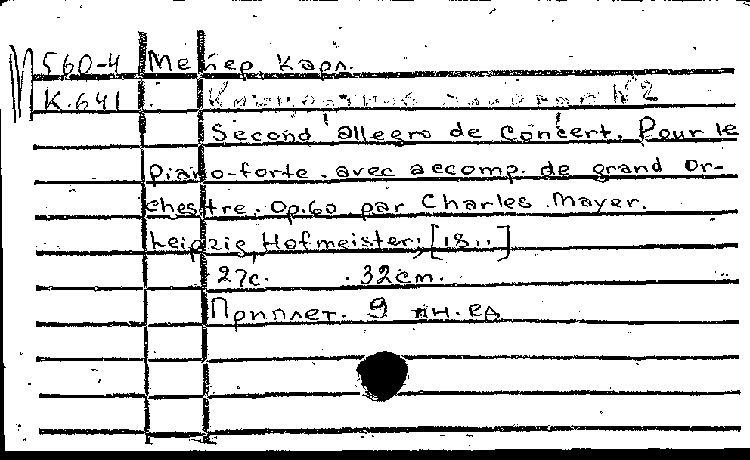 М 560-4 Мейер, Карл.
К.641 Концертное аллегро №2
Second allegro de concert. Pour le
piano-forte, avec accomp. de grand or-
chestre. Op.60 par Charles Mayer.
Leipzig, Hofmeister, [18..]
27с. 32см.
Приплет. 9 ин.ед